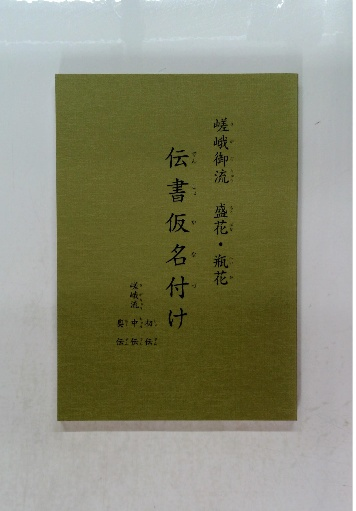 嵯峨御流 盛花・瓶花
伝書仮名付け
嵯峨流
初伝
中伝
奥伝